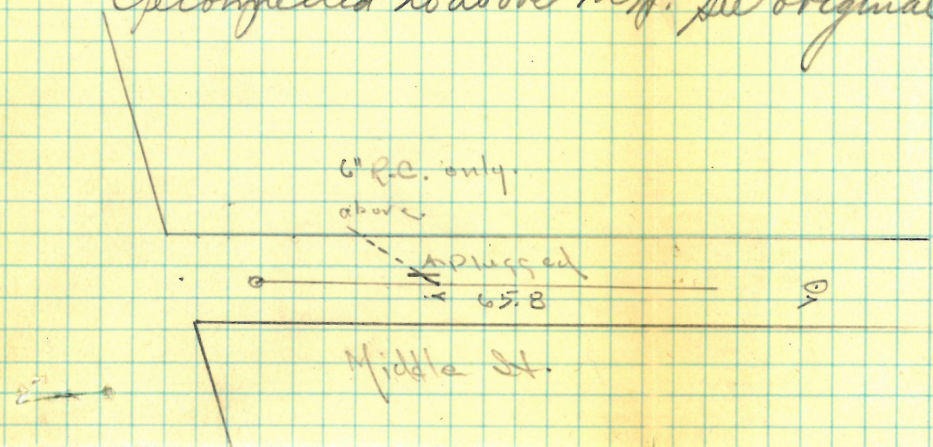 to above mH. See original
6" R.C. only.
above
plugged
65.8
Middle St.